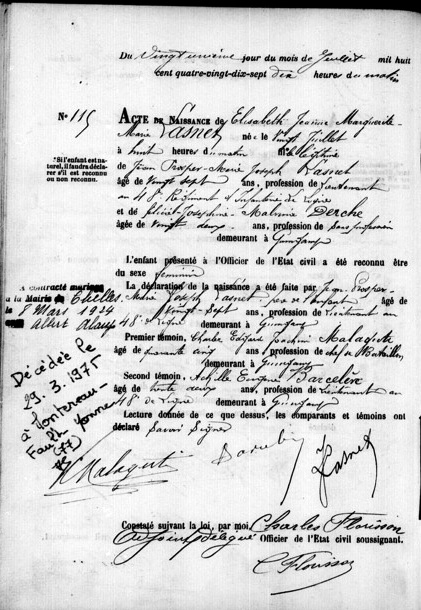 Du Vingt unième jour du mois de Juillet mil huit
cent quatre-vingt-dix-sept dix heures du matin
N° 115
ACTE DE NAISSANCE de Elisabeth Jeanne Marguerite-
Marie Lasnet née le vingt Juillet
à huit heures du matin
*Si l'enfant est na-
turel, il faudra décla-
rer s'il est reconnu
ou non reconnu.
de Jean Prosper-Marie Joseph Lasnet
âgé de vingt sept ans, profession de Lieutenant
au 48e Régiment d'Infanterie de Ligne
et de Joséphine Derche
âgée de vingt deux ans, profession de sans profession
demeurant à Guingamp
L'enfant présenté à l'Officier de l'Etat civil a été reconnu être
du sexe féminin
La déclaration de la naissance a été faite par Jean Prosper-
Marie Joseph Lasnet père de l'enfant âgé de
Vingt-Sept ans, profession de Lieutenant au
48e de Ligne demeurant à Guingamp
A contracté mariage
à la Mairie de Chelles
le 8 Mars 1924
Albert
Premier témoin, Charles Edgard Joachim Malaguti
âgé de quarante cinq ans, profession de chef de Bataillon
demeurant à Guingamp
Second témoin, Achille Eugène Barcelère
âgé de trente deux ans, profession de Lieutenant au
48e de Ligne demeurant à Guingamp
Lecture donnée de ce que dessus, les comparants et témoins ont
déclaré Savoir Signer
Décédée le
29.3.1975
à Montereau-
Fault-Yonne
(77)
Malaguti
Lasnet
Constaté suivant la loi, par moi, Charles Flouisson
Adjoint délégué Officier de l'Etat civil soussigné.
C. Flouisson